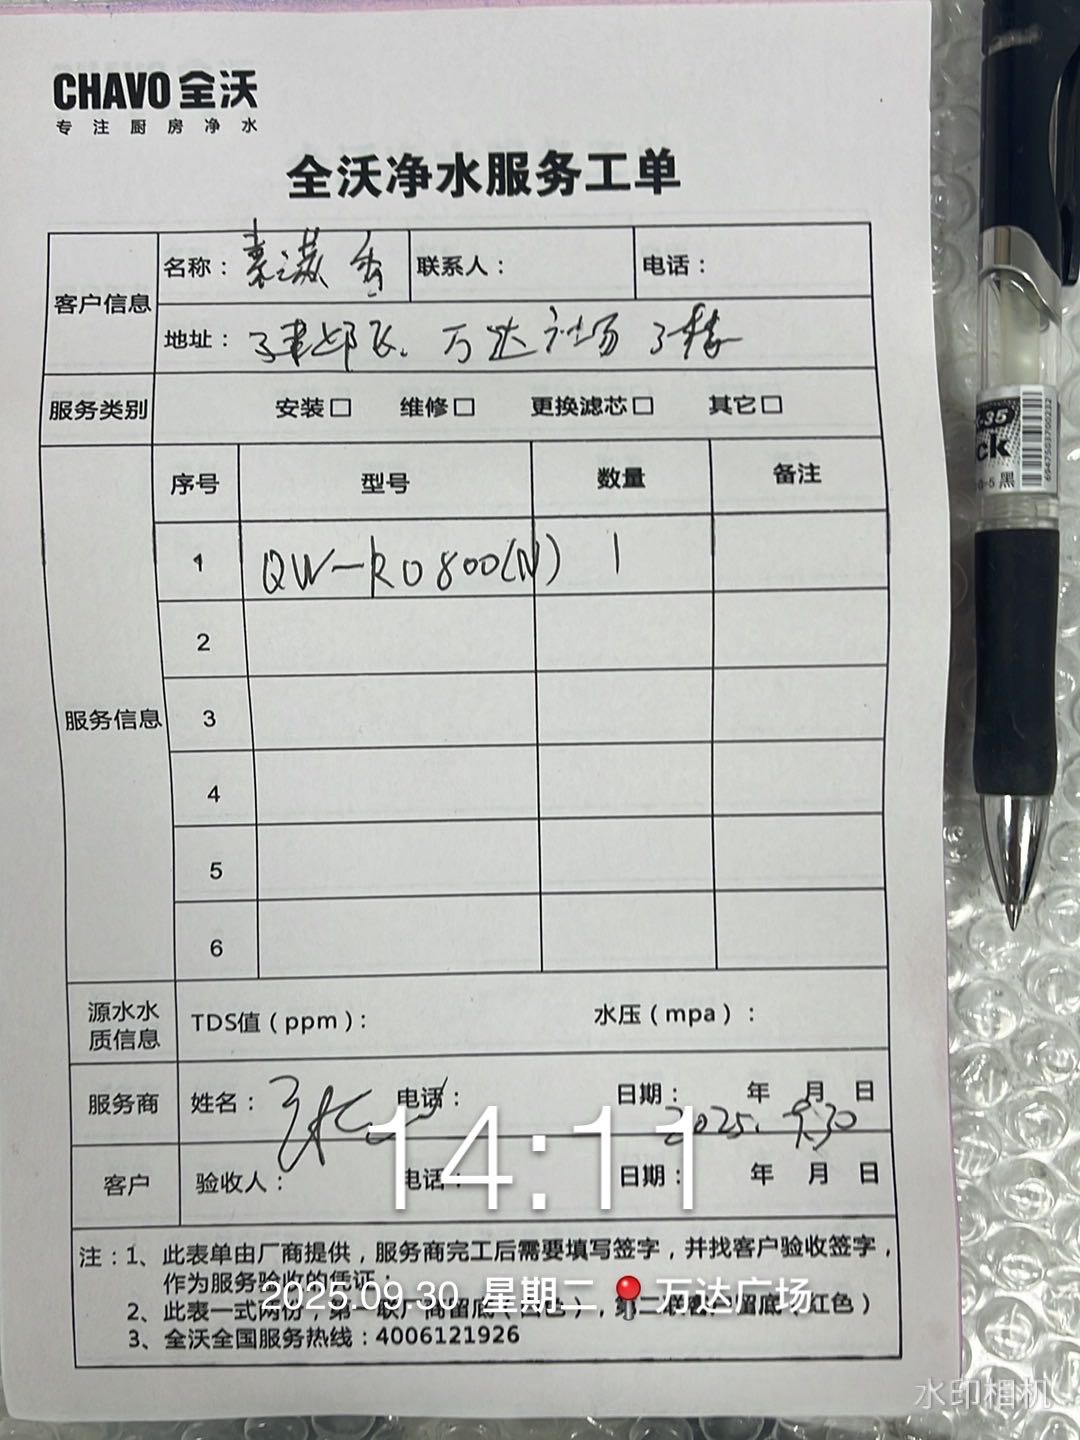 CHAVO 全沃
专注厨房净水
全沃净水服务工单
客户信息
名称： 联系人： 电话：
地址： 万达广场 3楼
服务类别 安装□ 维修□ 更换滤芯□ 其它□
服务信息
序号 型号 数量 备注
1 QW-RO800(N) 1
2
3
4
5
6
源水水质信息 TDS值（ppm）： 水压（mpa）：
服务商 姓名： 电话： 日期： 年 月 日
2025.9.30
14:11
客户 验收人： 电话： 日期： 年 月 日
注：1、此表单由厂商提供，服务商完工后需要填写签字，并找客户验收签字，
作为服务验收的凭证；
2025.09.30 星期二 万达广场
2、此表一式两份，第一联厂商留底（白色），第二联客户留底（红色）
3、全沃全国服务热线：4006121926
水印相机
-35
ck
0.5 黑